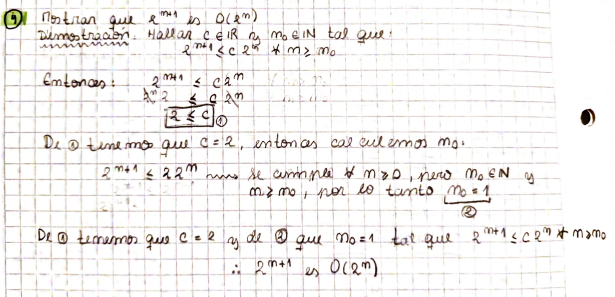 ④ Mostrar que 2^{n+1} es O(2^n)
Demostración. Hallar c ∈ ℝ y n₀ ∈ ℕ tal que:
2^{n+1} ≤ c 2^n ∀ n ≥ n₀
Entonces: 2^{n+1} ≤ c 2^n
2^n 2 ≤ c 2^n
2 ≤ c ①
De ① tenemos que c = 2, entonces calculemos n₀.
2^{n+1} ≤ 2 2^n se cumple ∀ n ≥ 0, pero n₀ ∈ ℕ y
n ≥ n₀, por lo tanto n₀ = 1
②
De ① tenemos que c = 2 y de ② que n₀ = 1 tal que 2^{n+1} ≤ c 2^n ∀ n ≥ n₀
∴ 2^{n+1} es O(2^n)